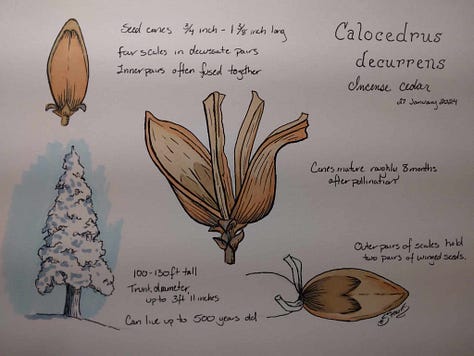 Seed cones 3/4 inch - 1 3/8 inch long
four scales in decussate pairs
Inner pairs often fused together
Calocedrus
decurrens
Incense cedar
27 January 2024
Cones mature roughly 8 months
after pollination
Outer pairs of scales hold
two pairs of winged seeds.
100-130 ft tall
Trunk diameter
up to 3ft 11 inches
Can live up to 500 years old